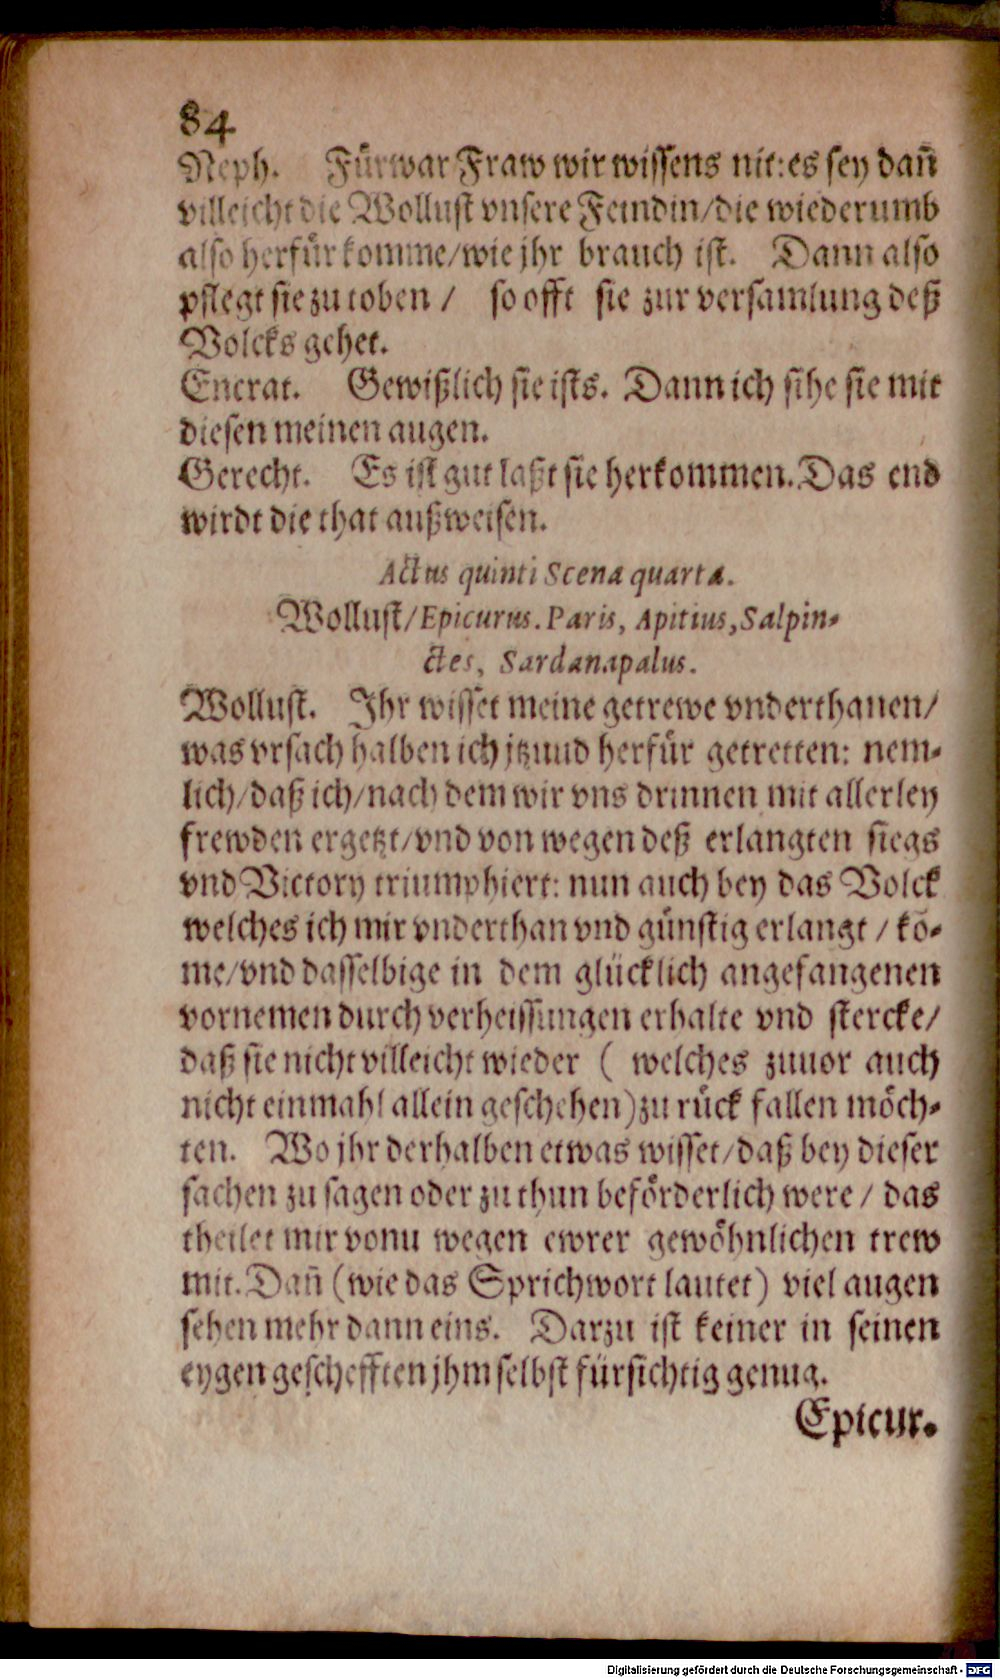 84
Neph. Fürwar Fraw wir wissens nit: es sey dañ
villeicht die Wollust vnsere Feindin/die wiederumb
also herfür komme/wie jhr brauch ist. Dann also
pflegt sie zu toben / so offt sie zur versamlung deß
Volcks gehet.
Encrat. Gewißlich sie ists. Dann ich sihe sie mit
diesen meinen augen.
Gerecht. Es ist gut laßt sie herkommen. Das end
wirdt die that außweisen.
Actus quinti Scena quarta.
Wollust/Epicurus. Paris, Apitius, Salpin-
ctes, Sardanapalus.
Wollust. Ihr wisset meine getrewe vnderthanen/
was vrsach halben ich jtzund herfür getretten: nem-
lich/daß ich/nach dem wir vns drinnen mit allerley
frewden ergetzt/vnd von wegen deß erlangten siegs
vnd Victory triumphiert: nun auch bey das Volck
welches ich mir vnderthan vnd günstig erlangt / kō-
me/vnd dasselbige in dem glücklich angefangenen
vornemen durch verheissungen erhalte vnd stercke/
daß sie nicht villeicht wieder ( welches zuuor auch
nicht einmahl allein geschehen) zu rück fallen möch-
ten. Wo jhr derhalben etwas wisset/daß bey dieser
sachen zu sagen oder zu thun beförderlich were / das
theilet mir vonu wegen ewrer gewöhnlichen trew
mit. Dañ (wie das Sprichwort lautet) viel augen
sehen mehr dann eins. Darzu ist keiner in seinen
eygen geschefften jhm selbst fürsichtig genug.
Epicur.
Digitalisierung gefördert durch die Deutsche Forschungsgemeinschaft - DFG